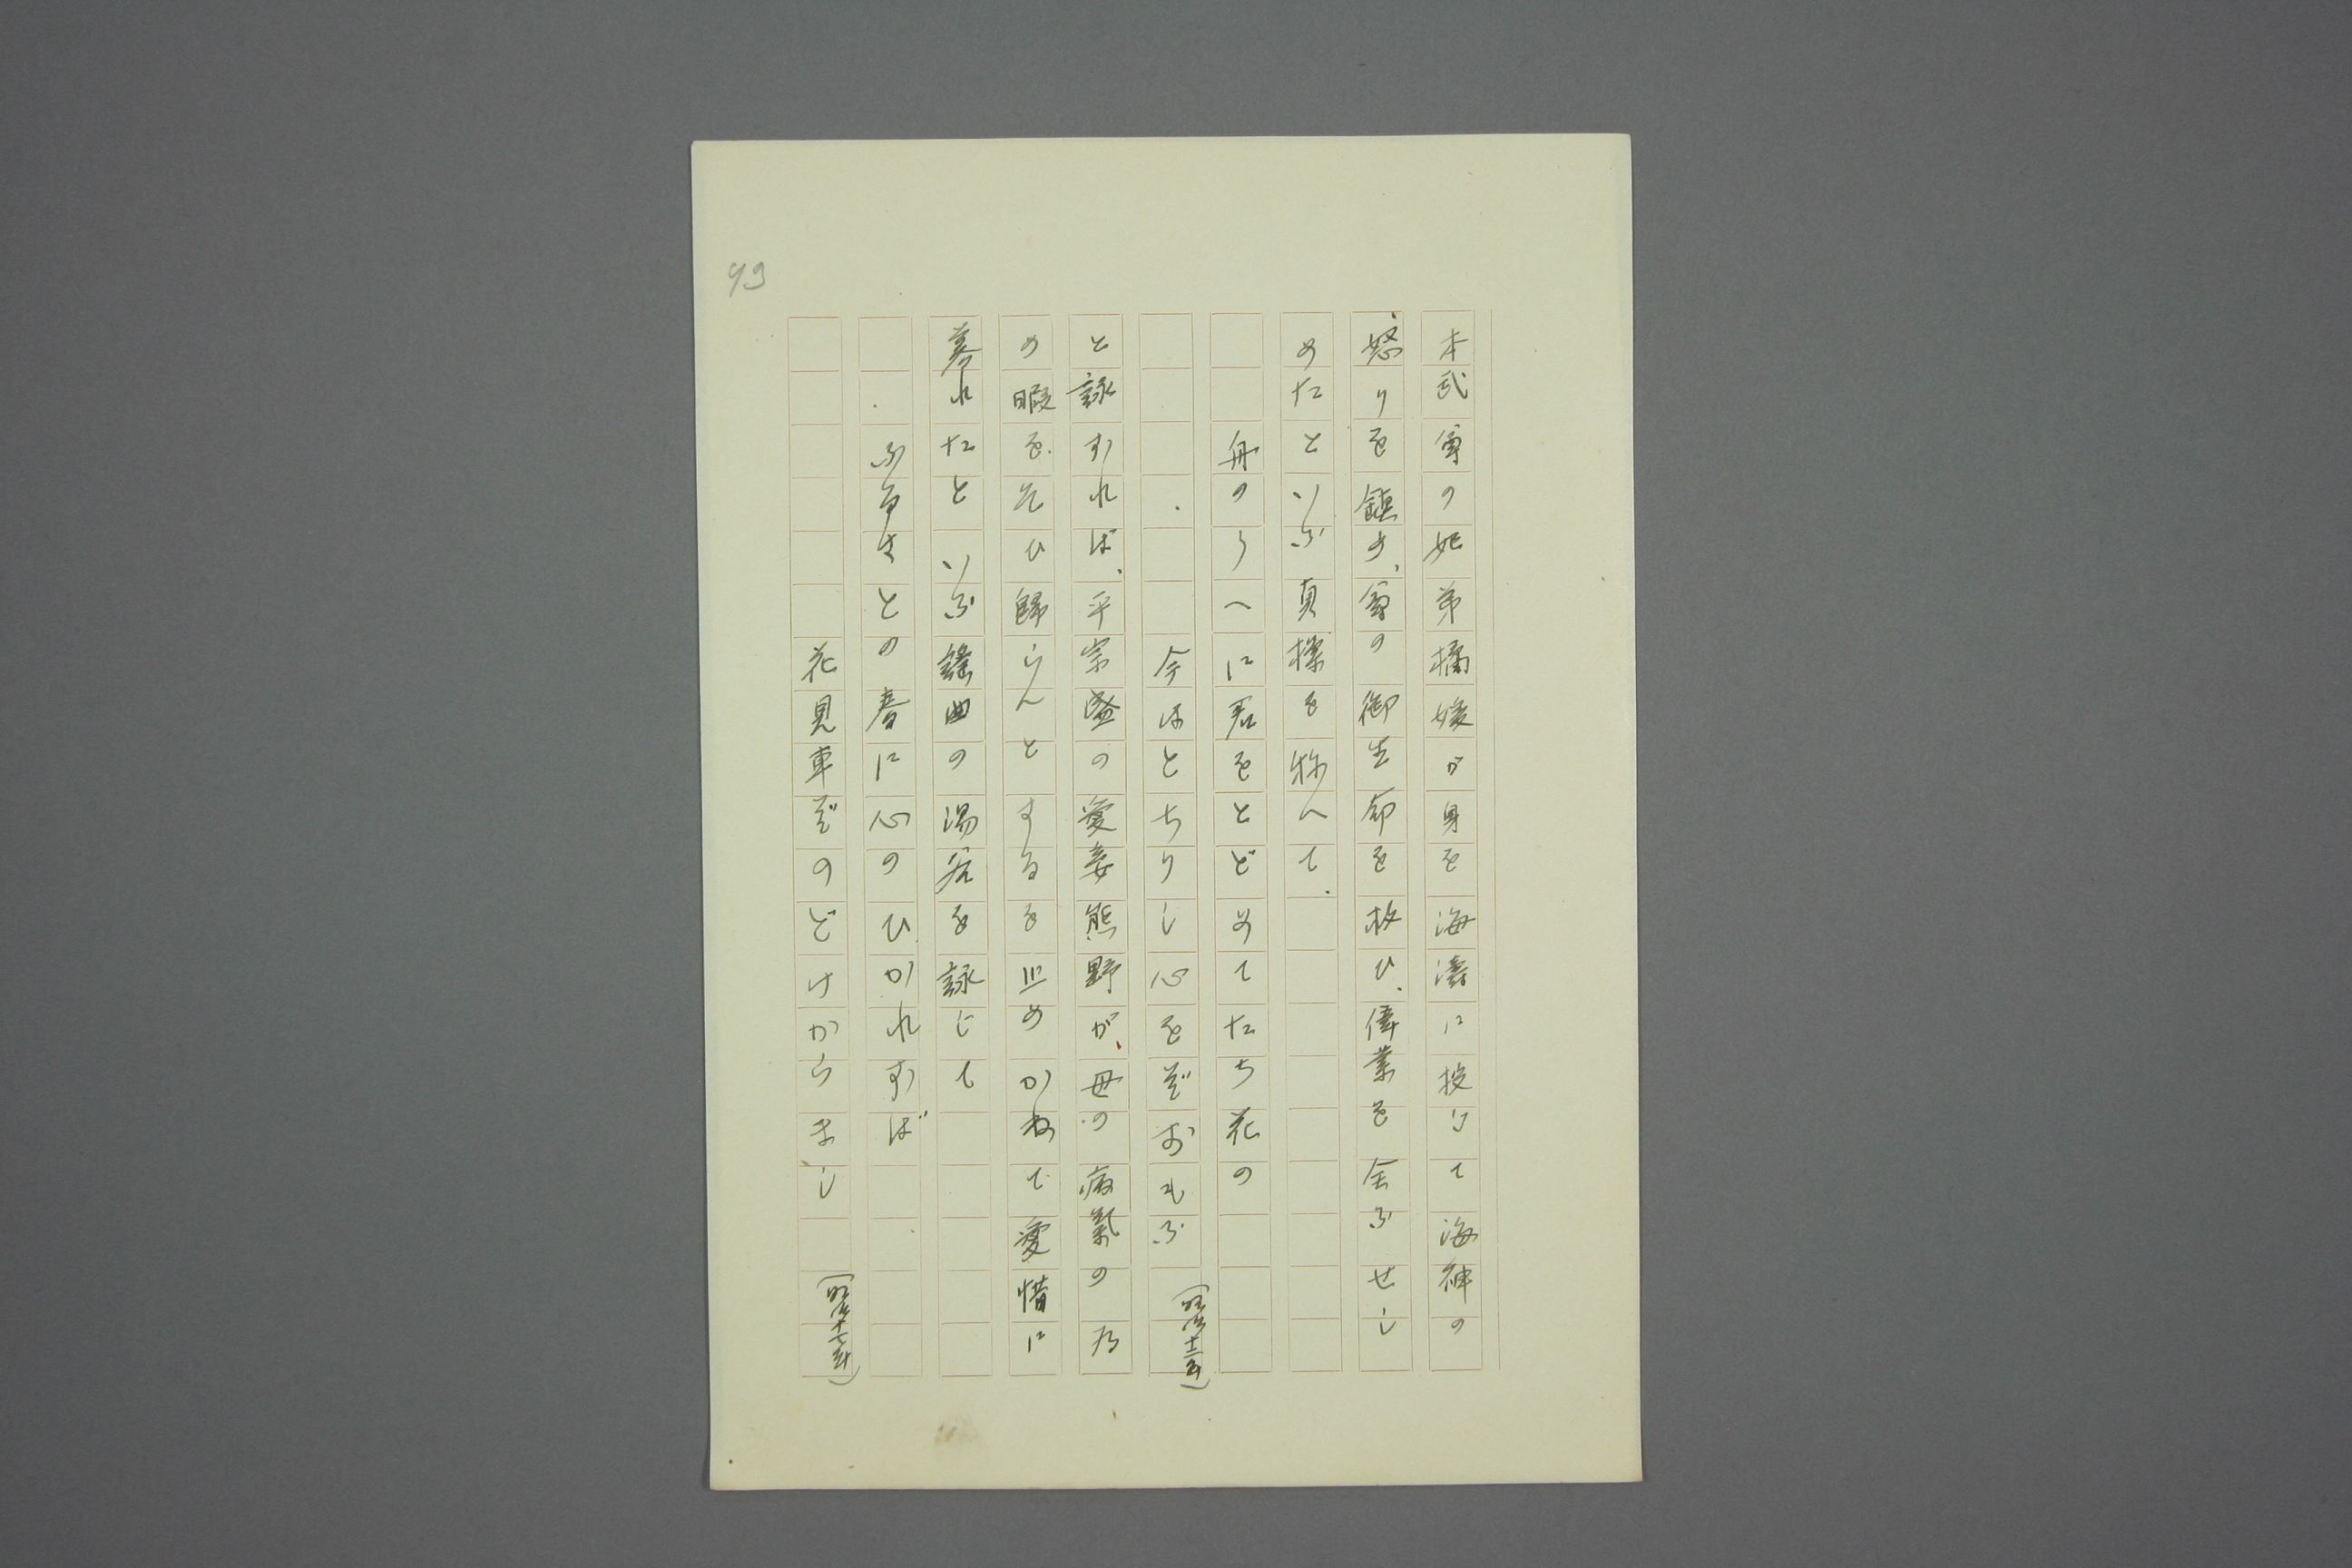 本武尊の妃弟橘媛が身を海濤に投じて海神の
怒りを鎮め、尊の御生命を救ひ、偉業を全ふせし
めたといふ真操を称へて、
舟のうへに君をとどめてたち花の
今はとちりし心をぞおもふ
(明治十二年)
と詠ずれば、平宗盛の愛妾熊野が、母の病氣の為
め暇を乞ひ歸らんとするを止めかねて愛惜に
暮れたといふ謠曲の湯谷を詠じて
ふるさとの春に心のひかれずば
花見車ぞのどけからまし
(明治十七年)
93